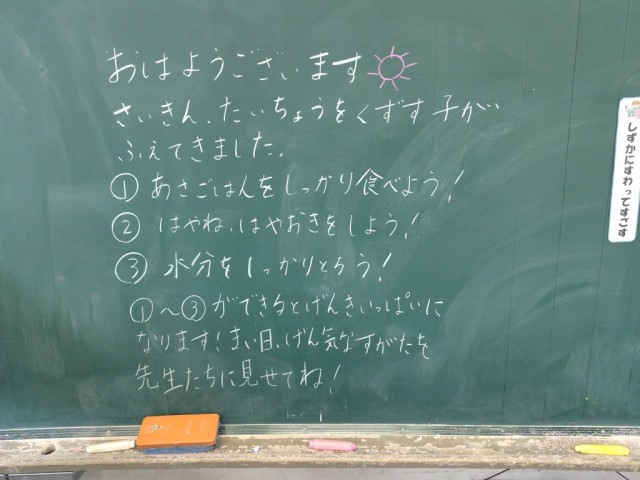 おはようございます
さいきん、たいちょうをくずす子が
ふえてきました。
① あさごはんをしっかり食べよう！
② はやね、はやおきをしよう！
③ 水分をしっかりとろう！
①～③ができるとげんきいっぱいに
なります！まい日、げん気なすがたを
先生たちに見せてね！
しずかにすわってすごす